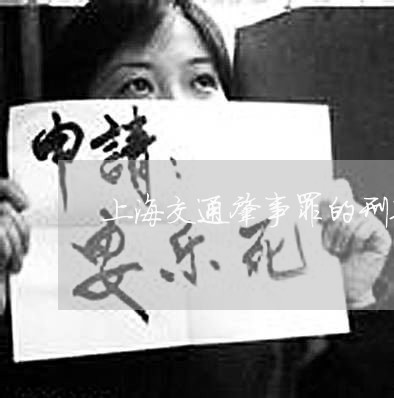 申請：
上海交通肇事罪的刑
安乐死